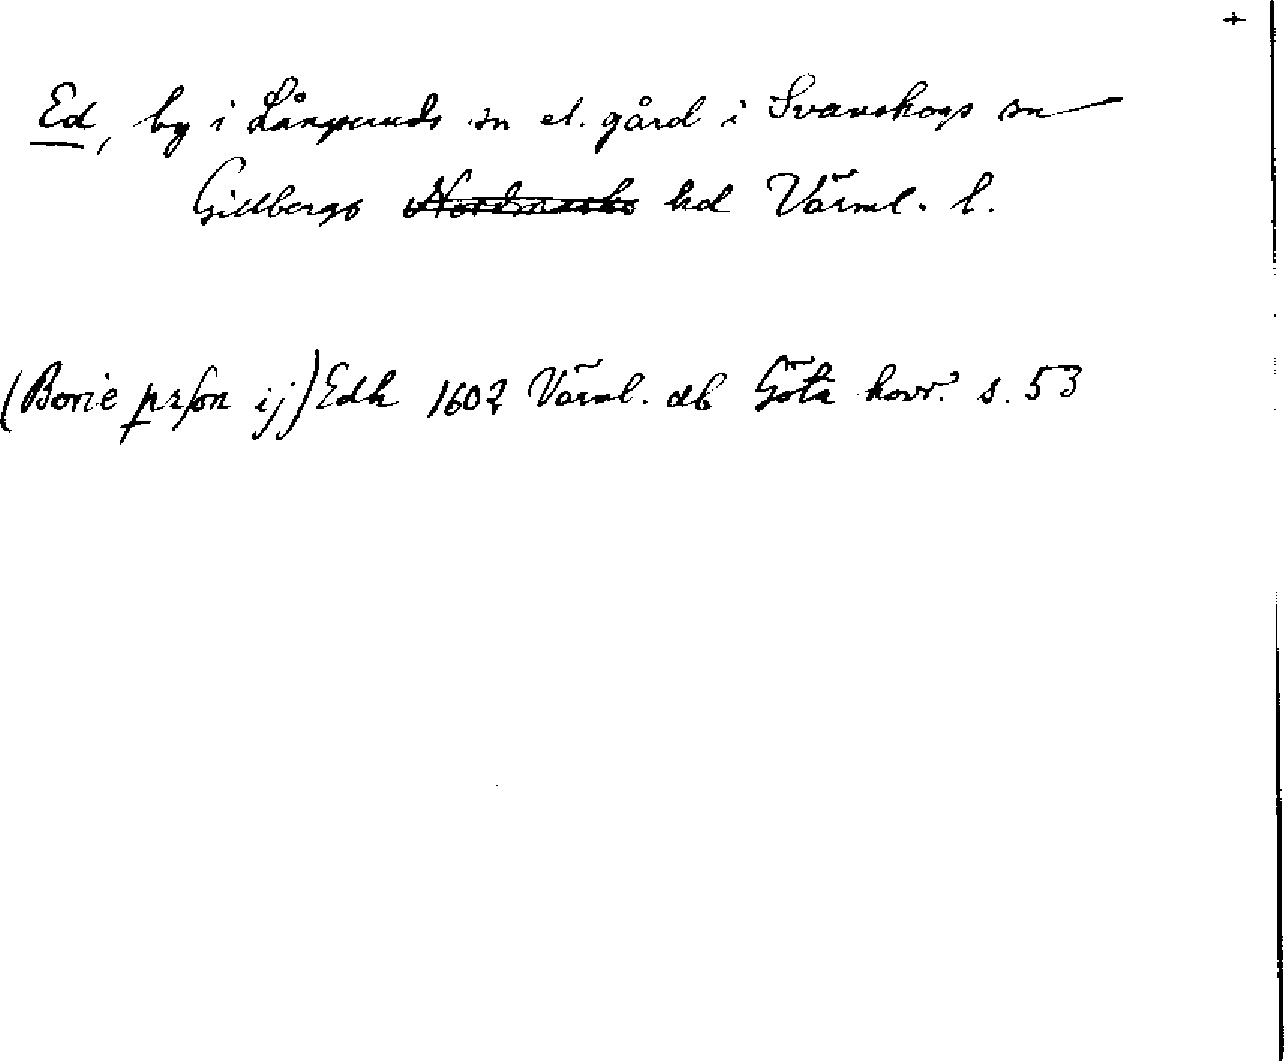 +
Ed, by i Långseruds sn el. gård i Svanskogs sn
Gillbergs Nordmarks hd Värml. l.
(Borie prson ij) Edh 1602 Värml. db Göta hovr. s. 53